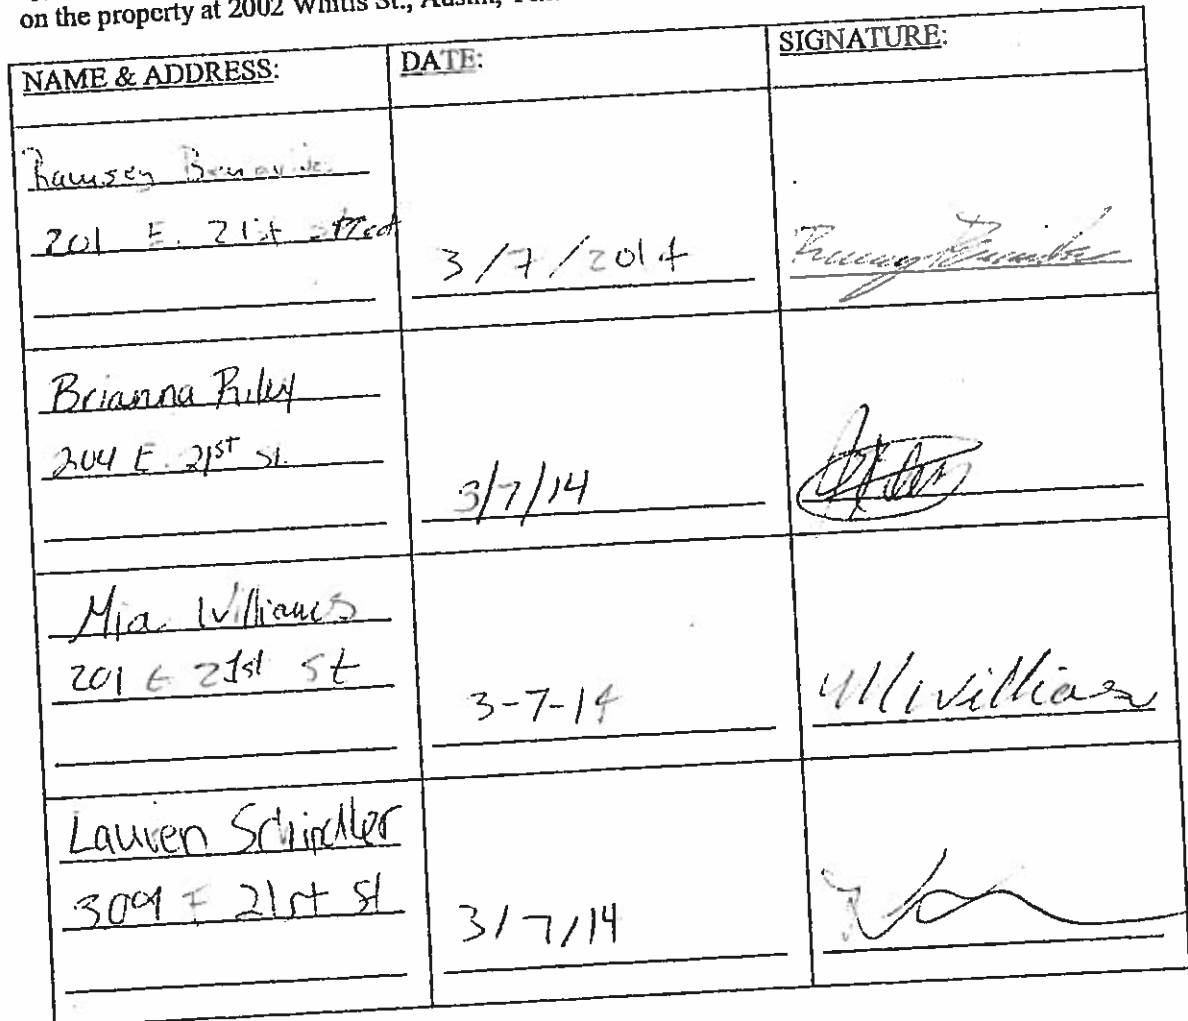 on the property at 2002 Whitis St., Austin,
NAME & ADDRESS: DATE: SIGNATURE:
Ramsey
201 E. 21st street
3/7/2014
Brianna Riley
204 E. 21st St.
3/7/14
Mia Williams
201 E 21st St
3-7-14
Lauren Schindler
309 E 21st St
3/7/14